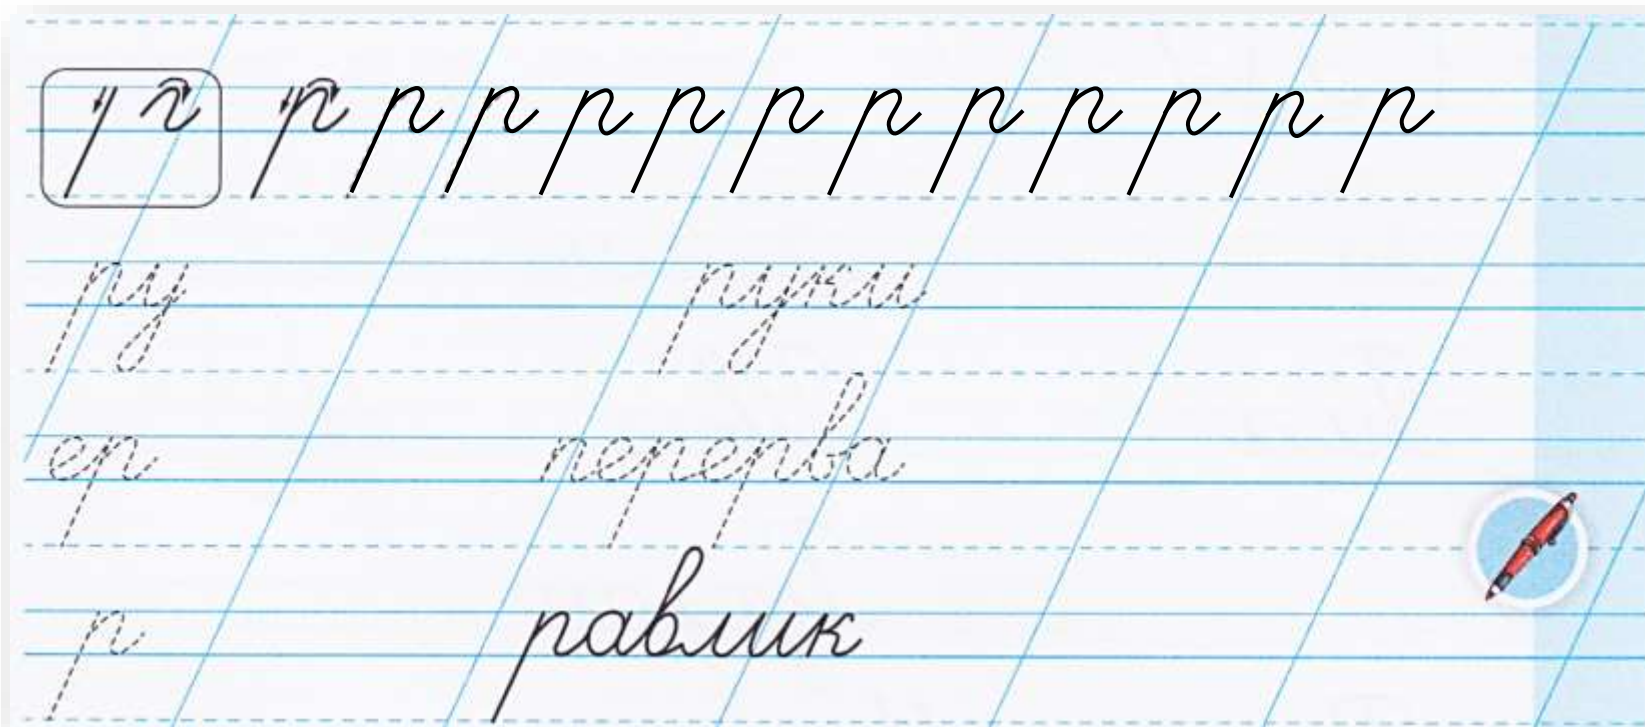 р р р р р р р р р р р р
ру руки
ер перерва
р равлик